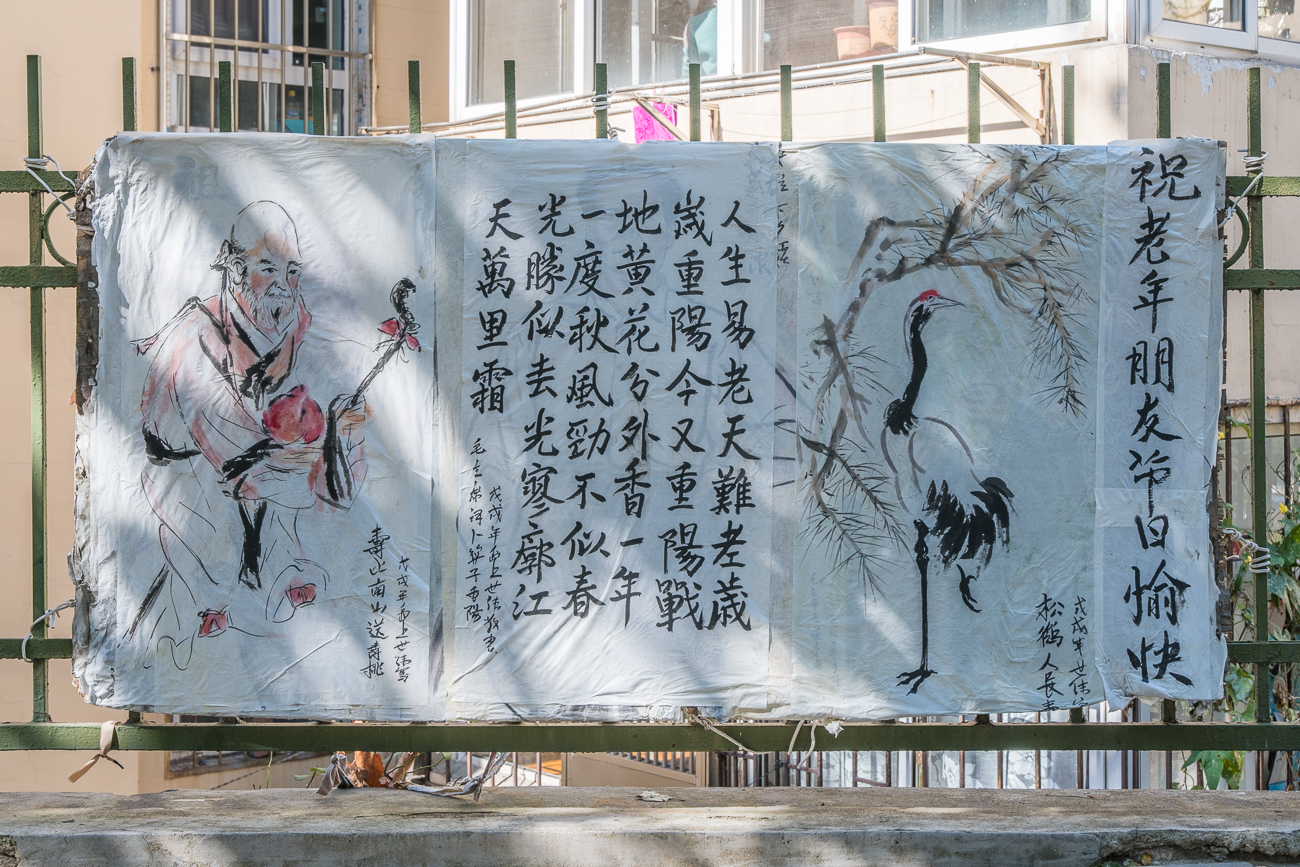 祝老年朋友节日愉快
戊戌年世伟
松鹤人長
人生易老天難老歲
歲重陽今又重陽戰
地黃花分外香一年
一度秋風勁不似春
光勝似去光寥廓江
天萬里霜
戊戌年 世伟敬書
毛主席词卜算子重陽
戊戌年 世伟写
壽比南山送壽桃